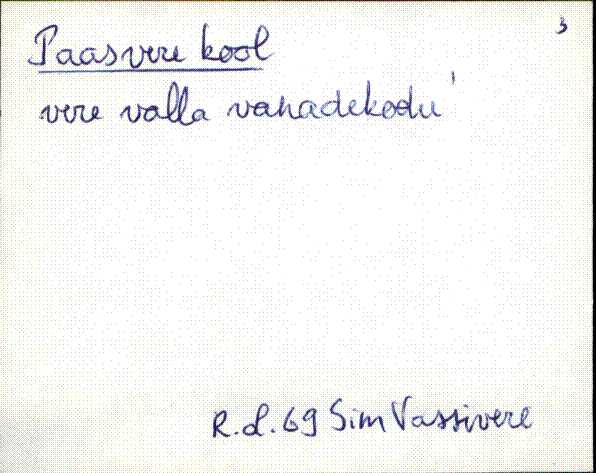 3
Paasvere kool
vere valla vanadekodu'
R.L. 69 Sim Vassivere